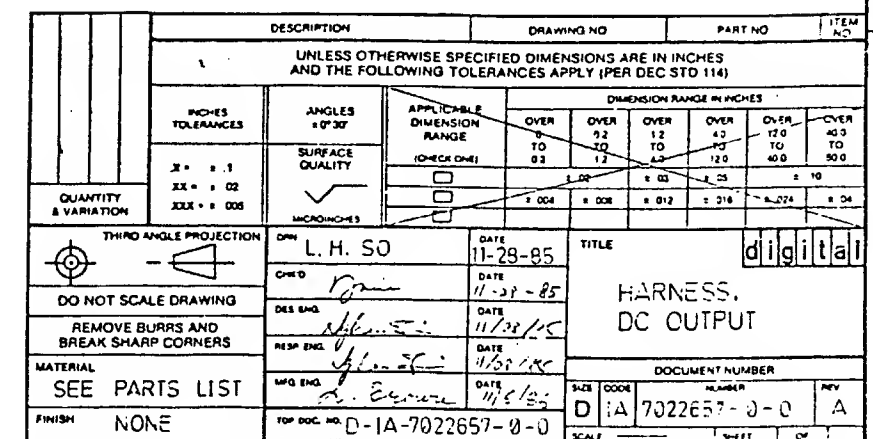 DESCRIPTION DRAWING NO PART NO ITEM NO
UNLESS OTHERWISE SPECIFIED DIMENSIONS ARE IN INCHES
AND THE FOLLOWING TOLERANCES APPLY (PER DEC STD 114)
QUANTITY & VARIATION
INCHES TOLERANCES
.X = ± .1
.XX = ± .02
.XXX = ± .005
ANGLES
± 0° 30'
SURFACE QUALITY
MICROINCHES
APPLICABLE DIMENSION RANGE
(CHECK ONE)
DIMENSION RANGE IN INCHES
OVER 0 TO 0.2
OVER 0.2 TO 1.2
OVER 1.2 TO 4.0
OVER 4.0 TO 12.0
OVER 12.0 TO 40.0
OVER 40.0 TO 50.0
± .02 ± .03 ± .05 ± .10
± .004 ± .008 ± .012 ± .016 ± .024 ± .04
THIRD ANGLE PROJECTION
DO NOT SCALE DRAWING
REMOVE BURRS AND
BREAK SHARP CORNERS
MATERIAL
SEE PARTS LIST
FINISH NONE
DRN L. H. SO DATE 11-28-85
CHK'D DATE 11-28-85
DES ENG. DATE
RESP ENG. DATE
MFG ENG. DATE
TOP DOC. NO. D-IA-7022657-0-0
TITLE
digital
HARNESS,
DC OUTPUT
DOCUMENT NUMBER
SIZE CODE NUMBER REV
D IA 7022657-0-0 A
SCALE SHEET OF